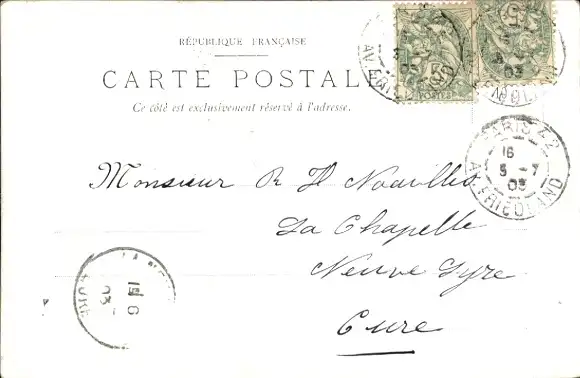 RÉPUBLIQUE FRANÇAISE
CARTE POSTALE
Ce côté est exclusivement réservé à l'adresse.
PARIS 42
16
5 - 7
03
AV. FRIEDLAND
Monsieur R H Noailles
La Chapelle
Neuve Lyre
Eure